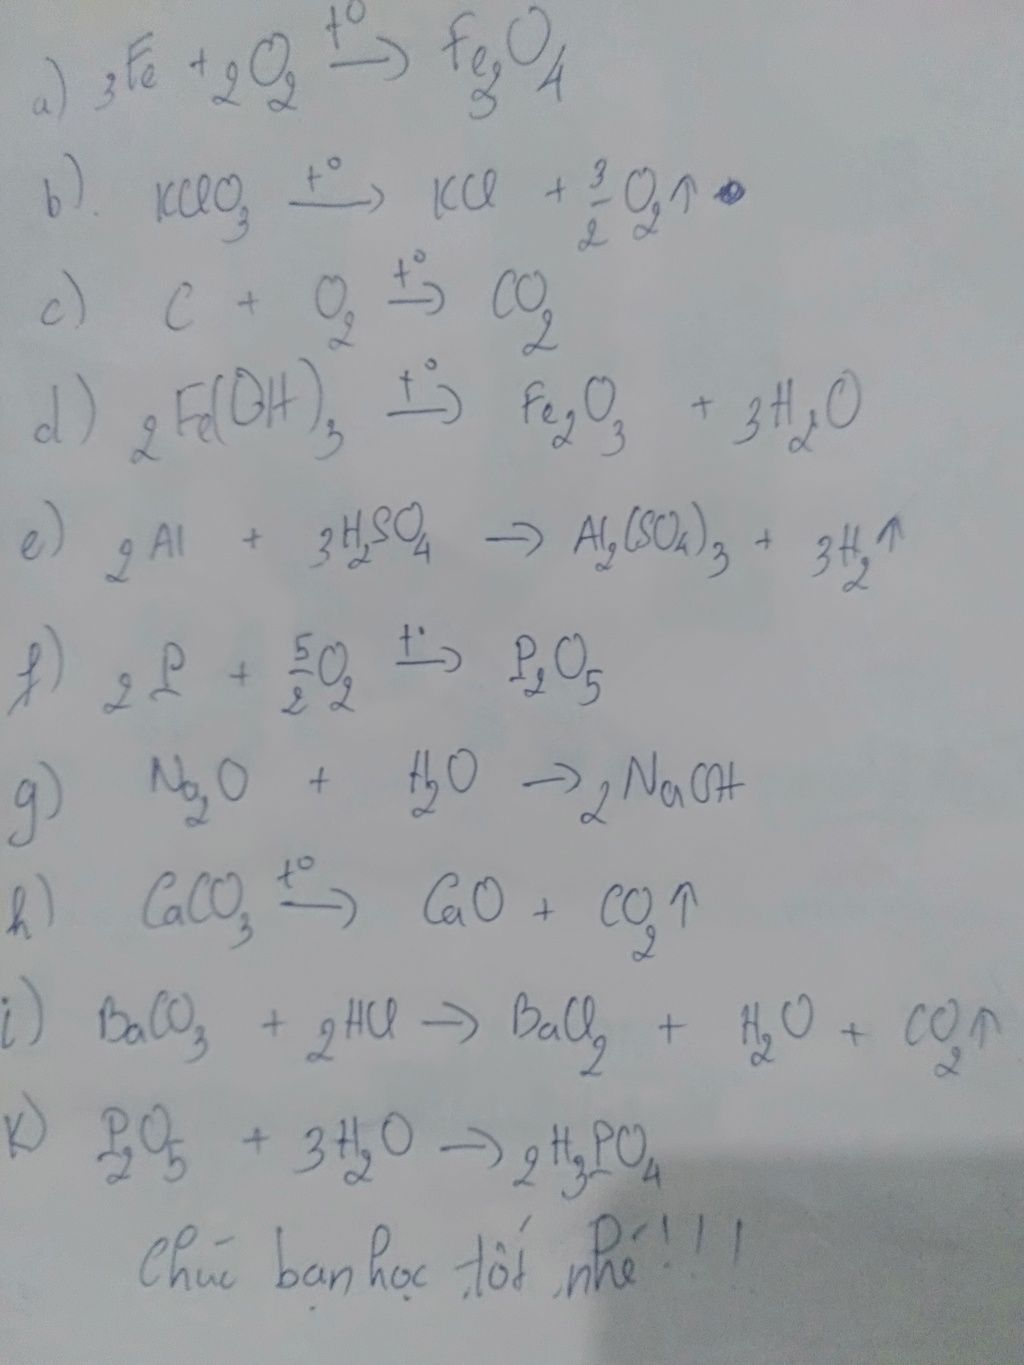 a) 3Fe + 2O₂ t⁰→ Fe₃O₄
b). KClO₃ t⁰→ KCl + 3/2 O₂↑
c) C + O₂ t⁰→ CO₂
d) 2Fe(OH)₃ t⁰→ Fe₂O₃ + 3H₂O
e) 2Al + 3H₂SO₄ → Al₂(SO₄)₃ + 3H₂↑
f) 2P + 5/2 O₂ t⁰→ P₂O₅
g) Na₂O + H₂O → 2NaOH
h) CaCO₃ t⁰→ CaO + CO₂↑
i) BaCO₃ + 2HCl → BaCl₂ + H₂O + CO₂↑
k) P₂O₅ + 3H₂O → 2H₃PO₄
Chúc bạn học tốt nhé!!!